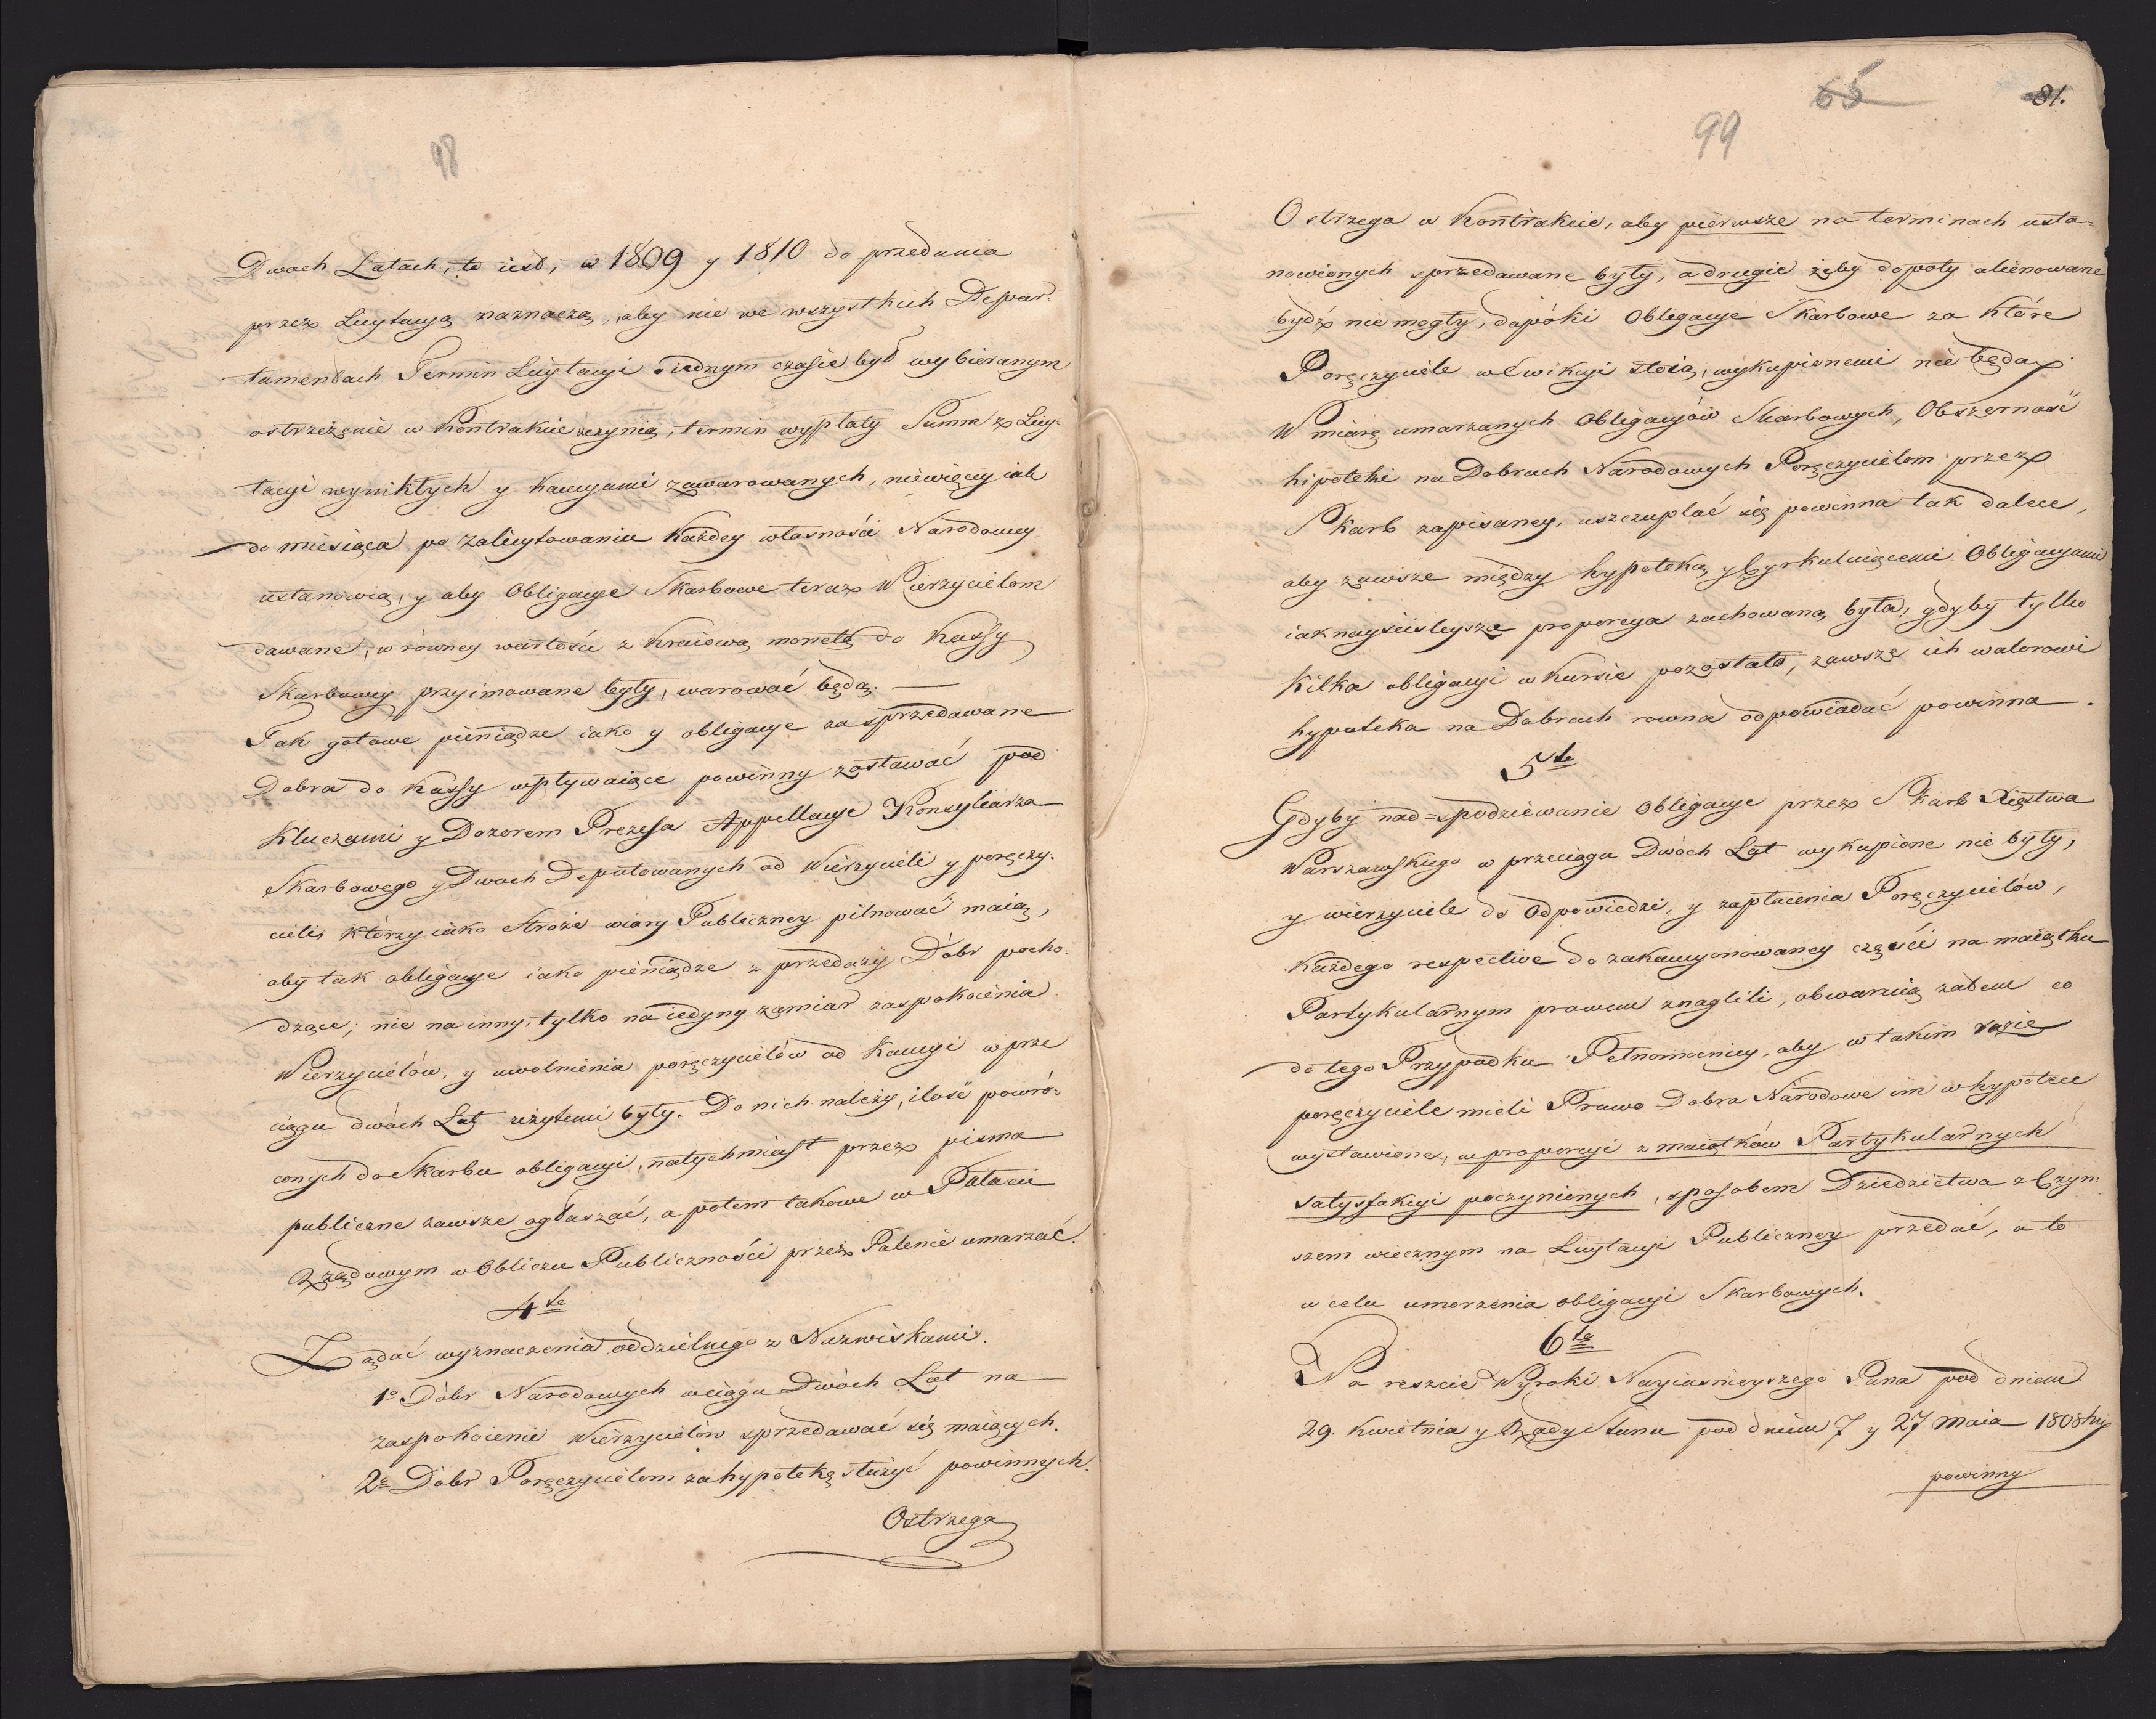 98
Dwoch Latach, to iest, w 1809 y 1810 do przedania
przez Licytacyą naznaczą, aby nie we wszystkich Depar-
tamentach Termin Licytacyi w iednym czasie był wybieranym
ostrzeżenie w Kontrakcie uczynią, termin wypłaty Summ z Licy-
tacyi wynikłych y kaucyami zawarowanych, niewięcey iak
do miesiąca po zalicytowaniu każdey własności Narodowey
ustanowią, y aby Obligacye Skarbowe teraz Wierzycielom
dawane, w równey wartości z kraiową monetą do Kassy
Skarbowey przyimowane były, warować będą. —
Tak gotowe pieniądze iako y obligacye za sprzedawane
Dobra do Kassy wpływaiące powinny zostawać pod
Kluczami y Dozorem Prezesa Appellacyi Konsyliarza
Skarbowego y Dwoch Deputowanych od Wierzycieli y poręczy-
cieli, którzy iako Stróże wiary Publiczney pilnować maią,
aby tak obligacye iako pieniądze z przedaży Dóbr pocho-
dzące, nie na inny, tylko na iedyny zamiar zaspokoienia
Wierzycielów, y uwolnienia poręczycielów od Kaucyi w prze
ciągu dwóch Lat użytemi były. Do nich należy, ilość powró-
conych do Skarbu obligacyi, natychmiast przez pisma
publiczne zawsze ogłaszać, a potem takowe w Pałacu
Rządowym w Obliczu Publiczności przez Palenie umarzać.
4te
Żądać wyznaczenia oddzielnego z Nazwiskami.
1o Dóbr Narodowych w ciągu Dwóch Lat na
zaspokoienie Wierzycielów sprzedawać się maiących.
2o Dobr Poręczycielom za hypotekę służyć powinnych.
Ostrzega
65
81.
99
Ostrzega w Kontrakcie, aby pierwsze na terminach usta-
nowionych sprzedawane były, a drugie żeby dopoty alienowane
bydź nie mogły, dopóki Obligacye Skarbowe za które
Poręczyciele w Ewikcyi stoią, wykupionemi nie będą.
W miarę umarzanych Obligacyów Skarbowych, Obszerność
hipoteki na Dobrach Narodowych Poręczycielom przez
Skarb zapisaney, uszczuplać się powinna tak dalece,
aby zawsze między hypoteką y Cyrkuluiącemi Obligacyami
iaknayściśleysza proporcya zachowaną była, gdyby tylko
Kilka obligacyi w Kursie pozostało, zawsze ich walorowi
hypoteka na Dobrach rowna odpowiadać powinna.
5te
Gdyby nad=spodziewanie Obligacye przez Skarb Xięstwa
Warszawskiego w przeciągu Dwóch Lat wykupione nie były,
y wierzyciele do Odpowiedzi, y zapłacenia Poręczycielów,
każdego respective do zakaucyonowaney części na maiątku
Partykularnym prawem znaglili, obwaruią zatem co
do tego Przypadku Pełnomocnicy, aby w takim razie
poręczyciele mieli Prawo Dobra Narodowe im w hypotece
wystawione, w proporcyi z maiątków Partykularnych
satysfakcyi poczynionych, sposobem Dziedzictwa z Czyn-
szem wiecznym na Licytacyi Publiczney przedać, a to
w celu umorzenia obligacyi Skarbowych.
6te
Na reszcie Wyroki Nayiaśnieyszego Pana pod dniem
29. Kwietnia y Rady Stanu pod dniem 7 y 27 Maia 1808
powinny